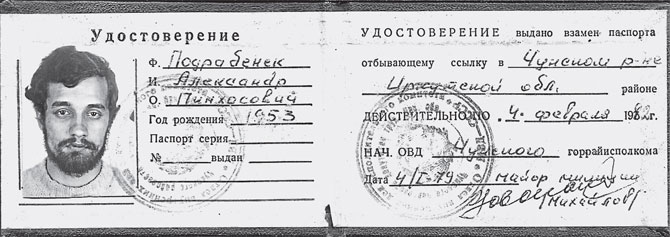 Удостоверение
Ф. Подрабенек
И. Александр
О. Пинхосович
Год рождения 1953
Паспорт серия
№ выдан
УДОСТОВЕРЕНИЕ выдано взамен паспорта
отбывающему ссылку в Чунском р-не
Иркутской обл. районе
ДЕЙСТВИТЕЛЬНО ПО 4 февраля 1982г.
НАЧ. ОВД Чунского горрайисполкома
Дата 4/I-79 майор милиции
Михайлов